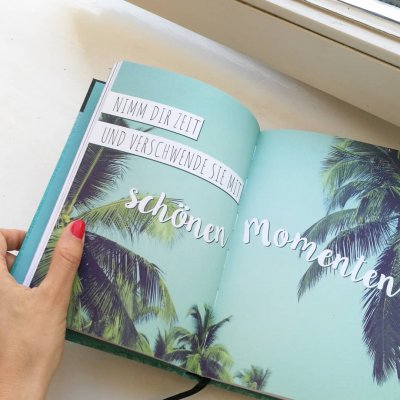 NIMM DIR ZEIT
UND VERSCHWENDE SIE MIT
schönen Momenten